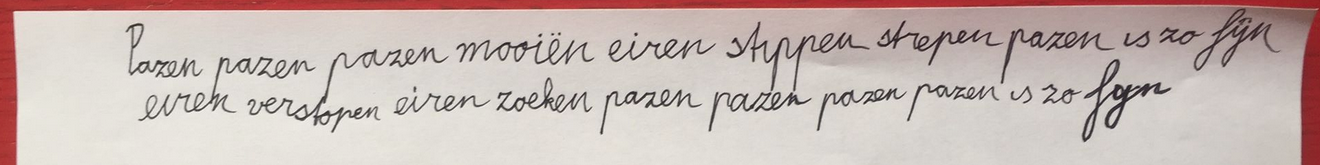 Pazen pazen pazen mooiën eiren stippen strepen pazen is zo fijn
eiren verstopen eiren zoeken pazen pazen pazen pazen is zo fyn